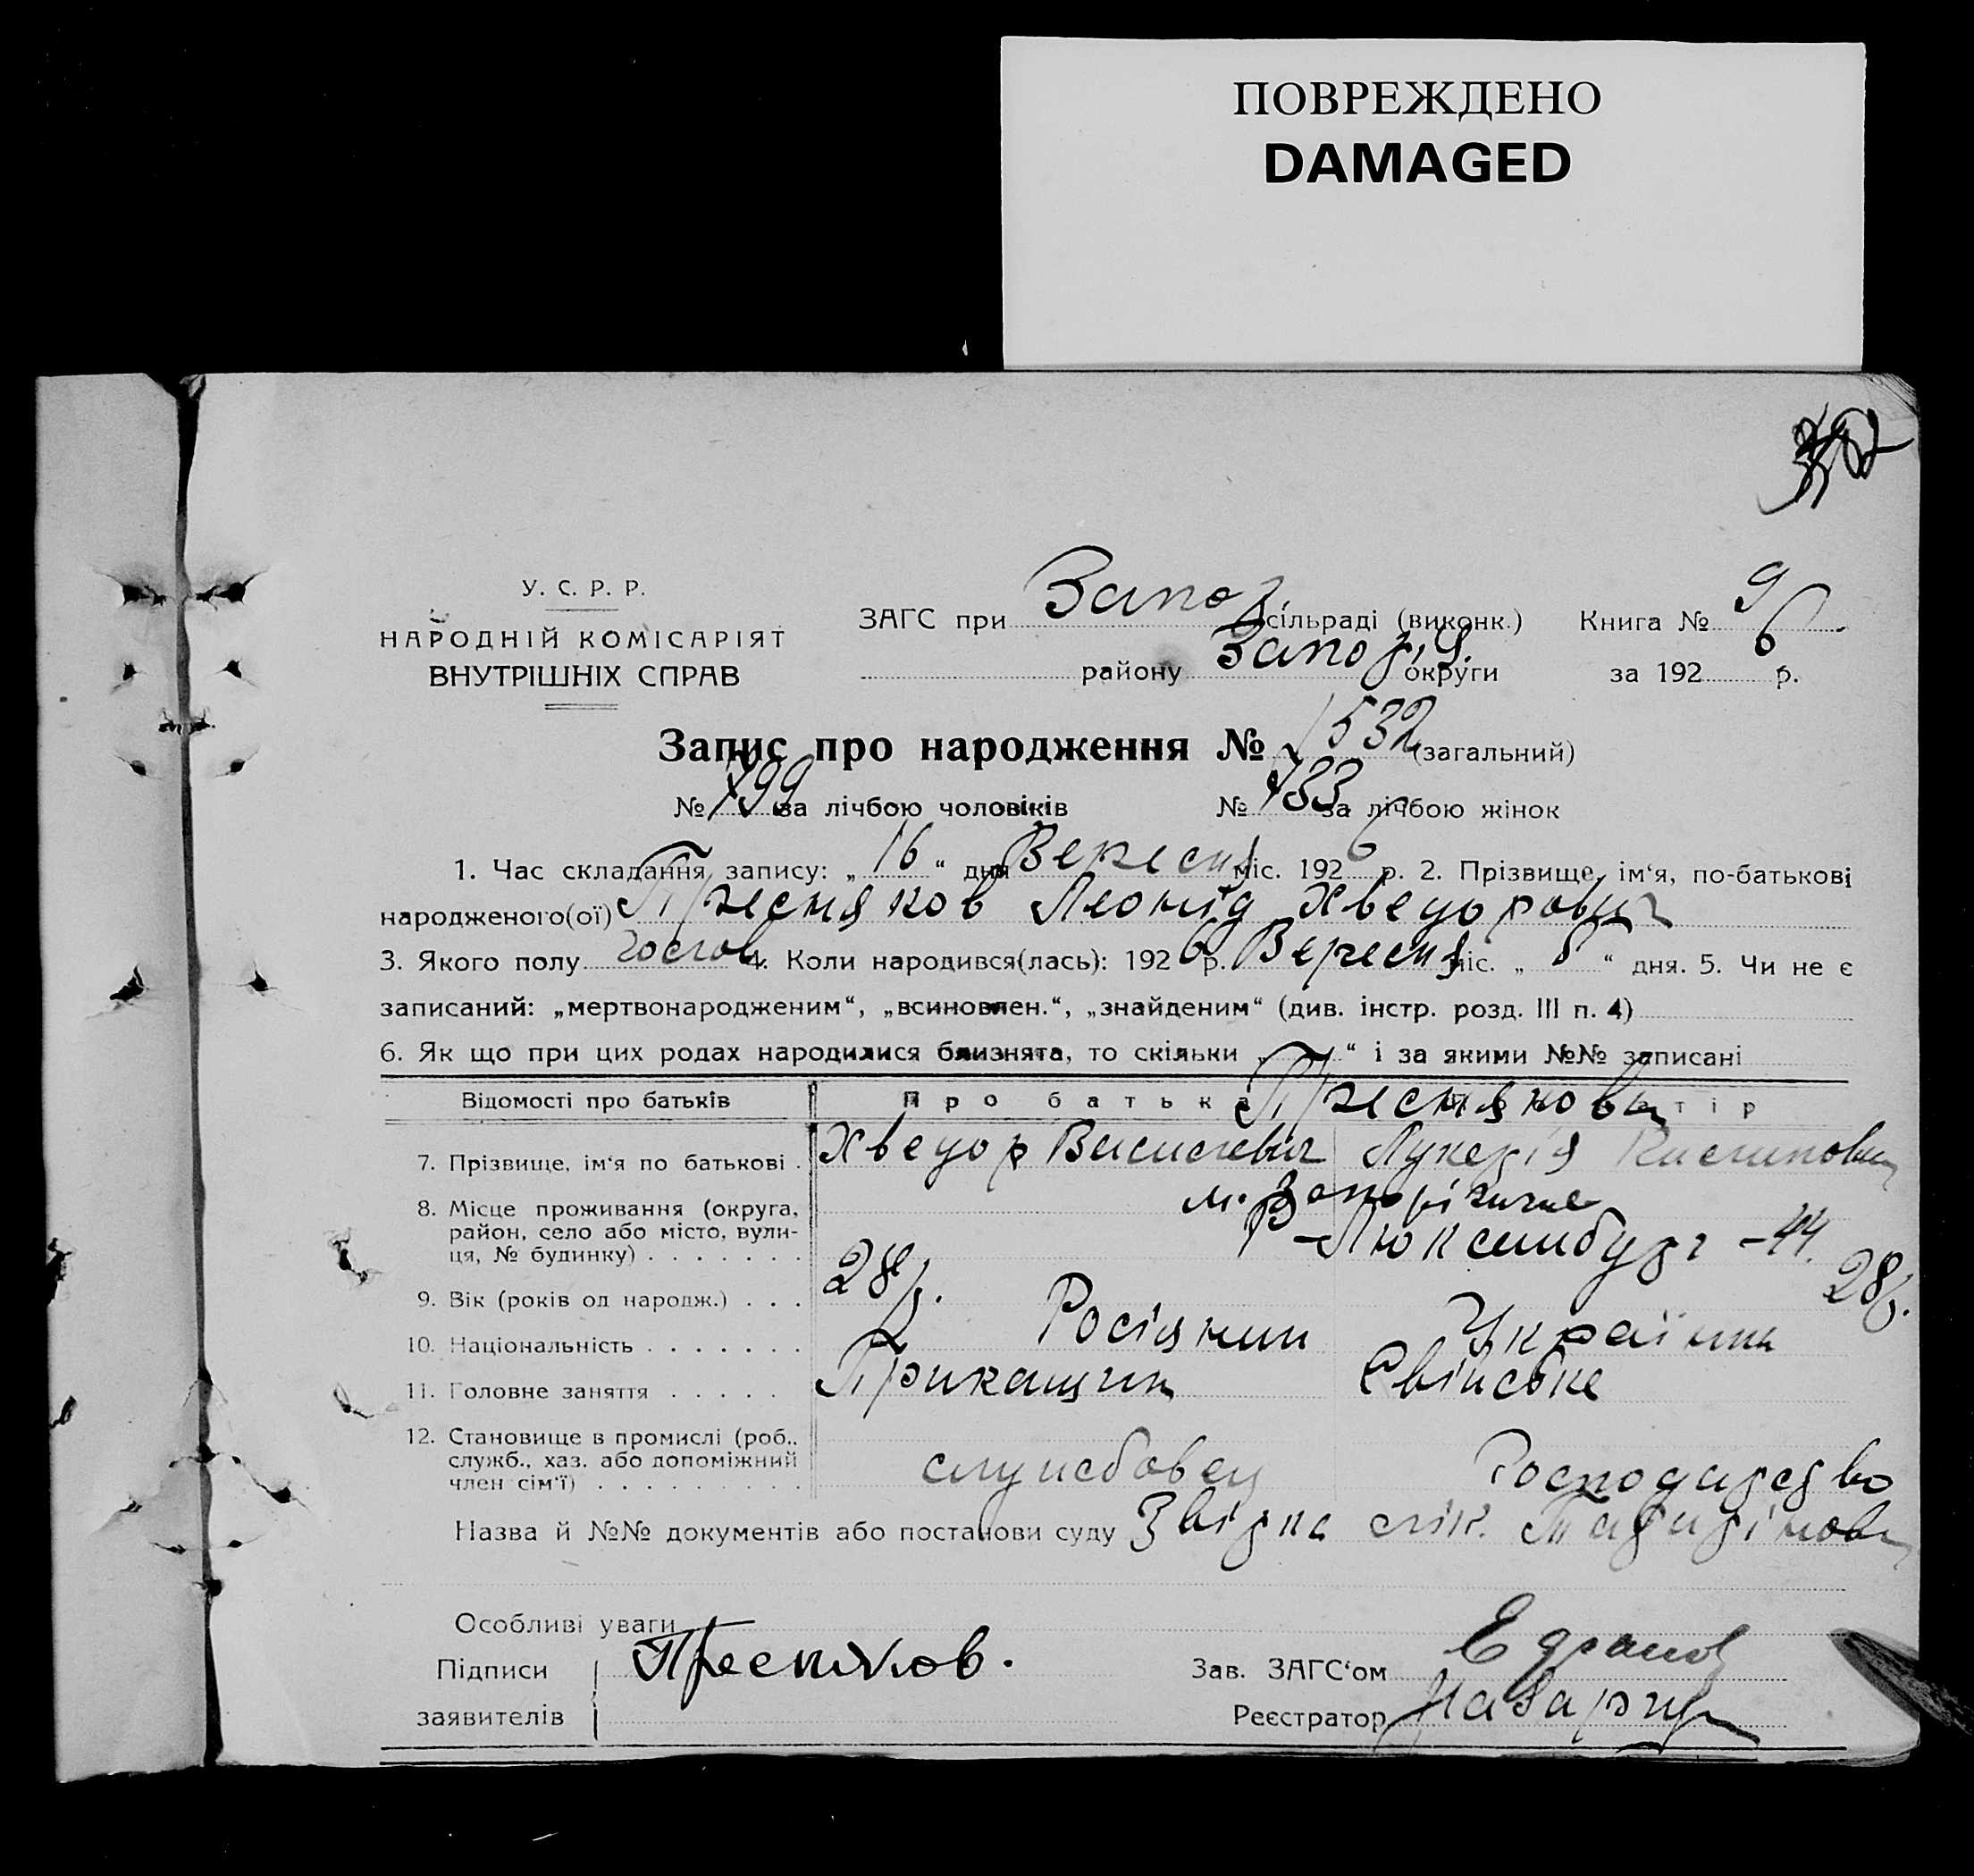 ПОВРЕЖДЕНО
DAMAGED
У. С. Р. Р.
НАРОДНІЙ КОМІСАРІЯТ
ВНУТРІШНІХ СПРАВ
ЗАГС при Запоз сільраді (виконк.) Книга № 9
району Запоріз. округи за 1926 р.
Запис про народження № 1532 (загальний)
№ 799 за лічбою чоловіків № 733 за лічбою жінок
1. Час складання запису: „16“ дня Вересня міс. 1926 р. 2. Прізвище, ім‘я, по-батькові
народженого(ої) Пресняков Леонід Хведорович
3. Якого полу чолов 4. Коли народився(лась): 1926 р. Вересня міс. „8“ дня. 5. Чи не є
записаний: „мертвонародженим“, „всиновлен.“, „знайденим“ (див. інстр. розд. III п. 4)
6. Як що при цих родах народилися близнята, то скільки „ “ і за якими №№ записані
Відомості про батьків Про батька Преснякови тір
7. Прізвище, ім‘я по батькові Хведор Василевич Лукерія
8. Місце проживання (округа, район, село або місто, вули-ця, № будинку) м. Запоріжже
Р-Люксембург -44.
9. Вік (років од народж.) 28р. 28р.
10. Національність Росіянин Українка
11. Головне заняття Прикащик Свійське
12. Становище в промислі (роб.. служб., хаз. або допоміжний член сім‘ї) службовец Господарство
Назва й №№ документів або постанови суду лік.
Особливі уваги
Підписи Пресняков.
заявителів
Зав. ЗАГС‘ом
Реєстратор